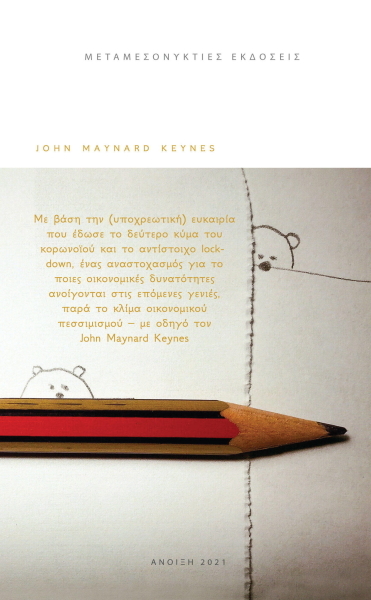 ΜΕΤΑΜΕΣΟΝΥΚΤΙΕΣ ΕΚΔΟΣΕΙΣ
JOHN MAYNARD KEYNES
Με βάση την (υποχρεωτική) ευκαιρία
που έδωσε το δεύτερο κύμα του
κορωνοϊού και το αντίστοιχο lock-
down, ένας αναστοχασμός για το
ποιες οικονομικές δυνατότητες
ανοίγονται στις επόμενες γενιές,
παρά το κλίμα οικονομικού
πεσσιμισμού – με οδηγό τον
John Maynard Keynes
ΑΝΟΙΞΗ 2021